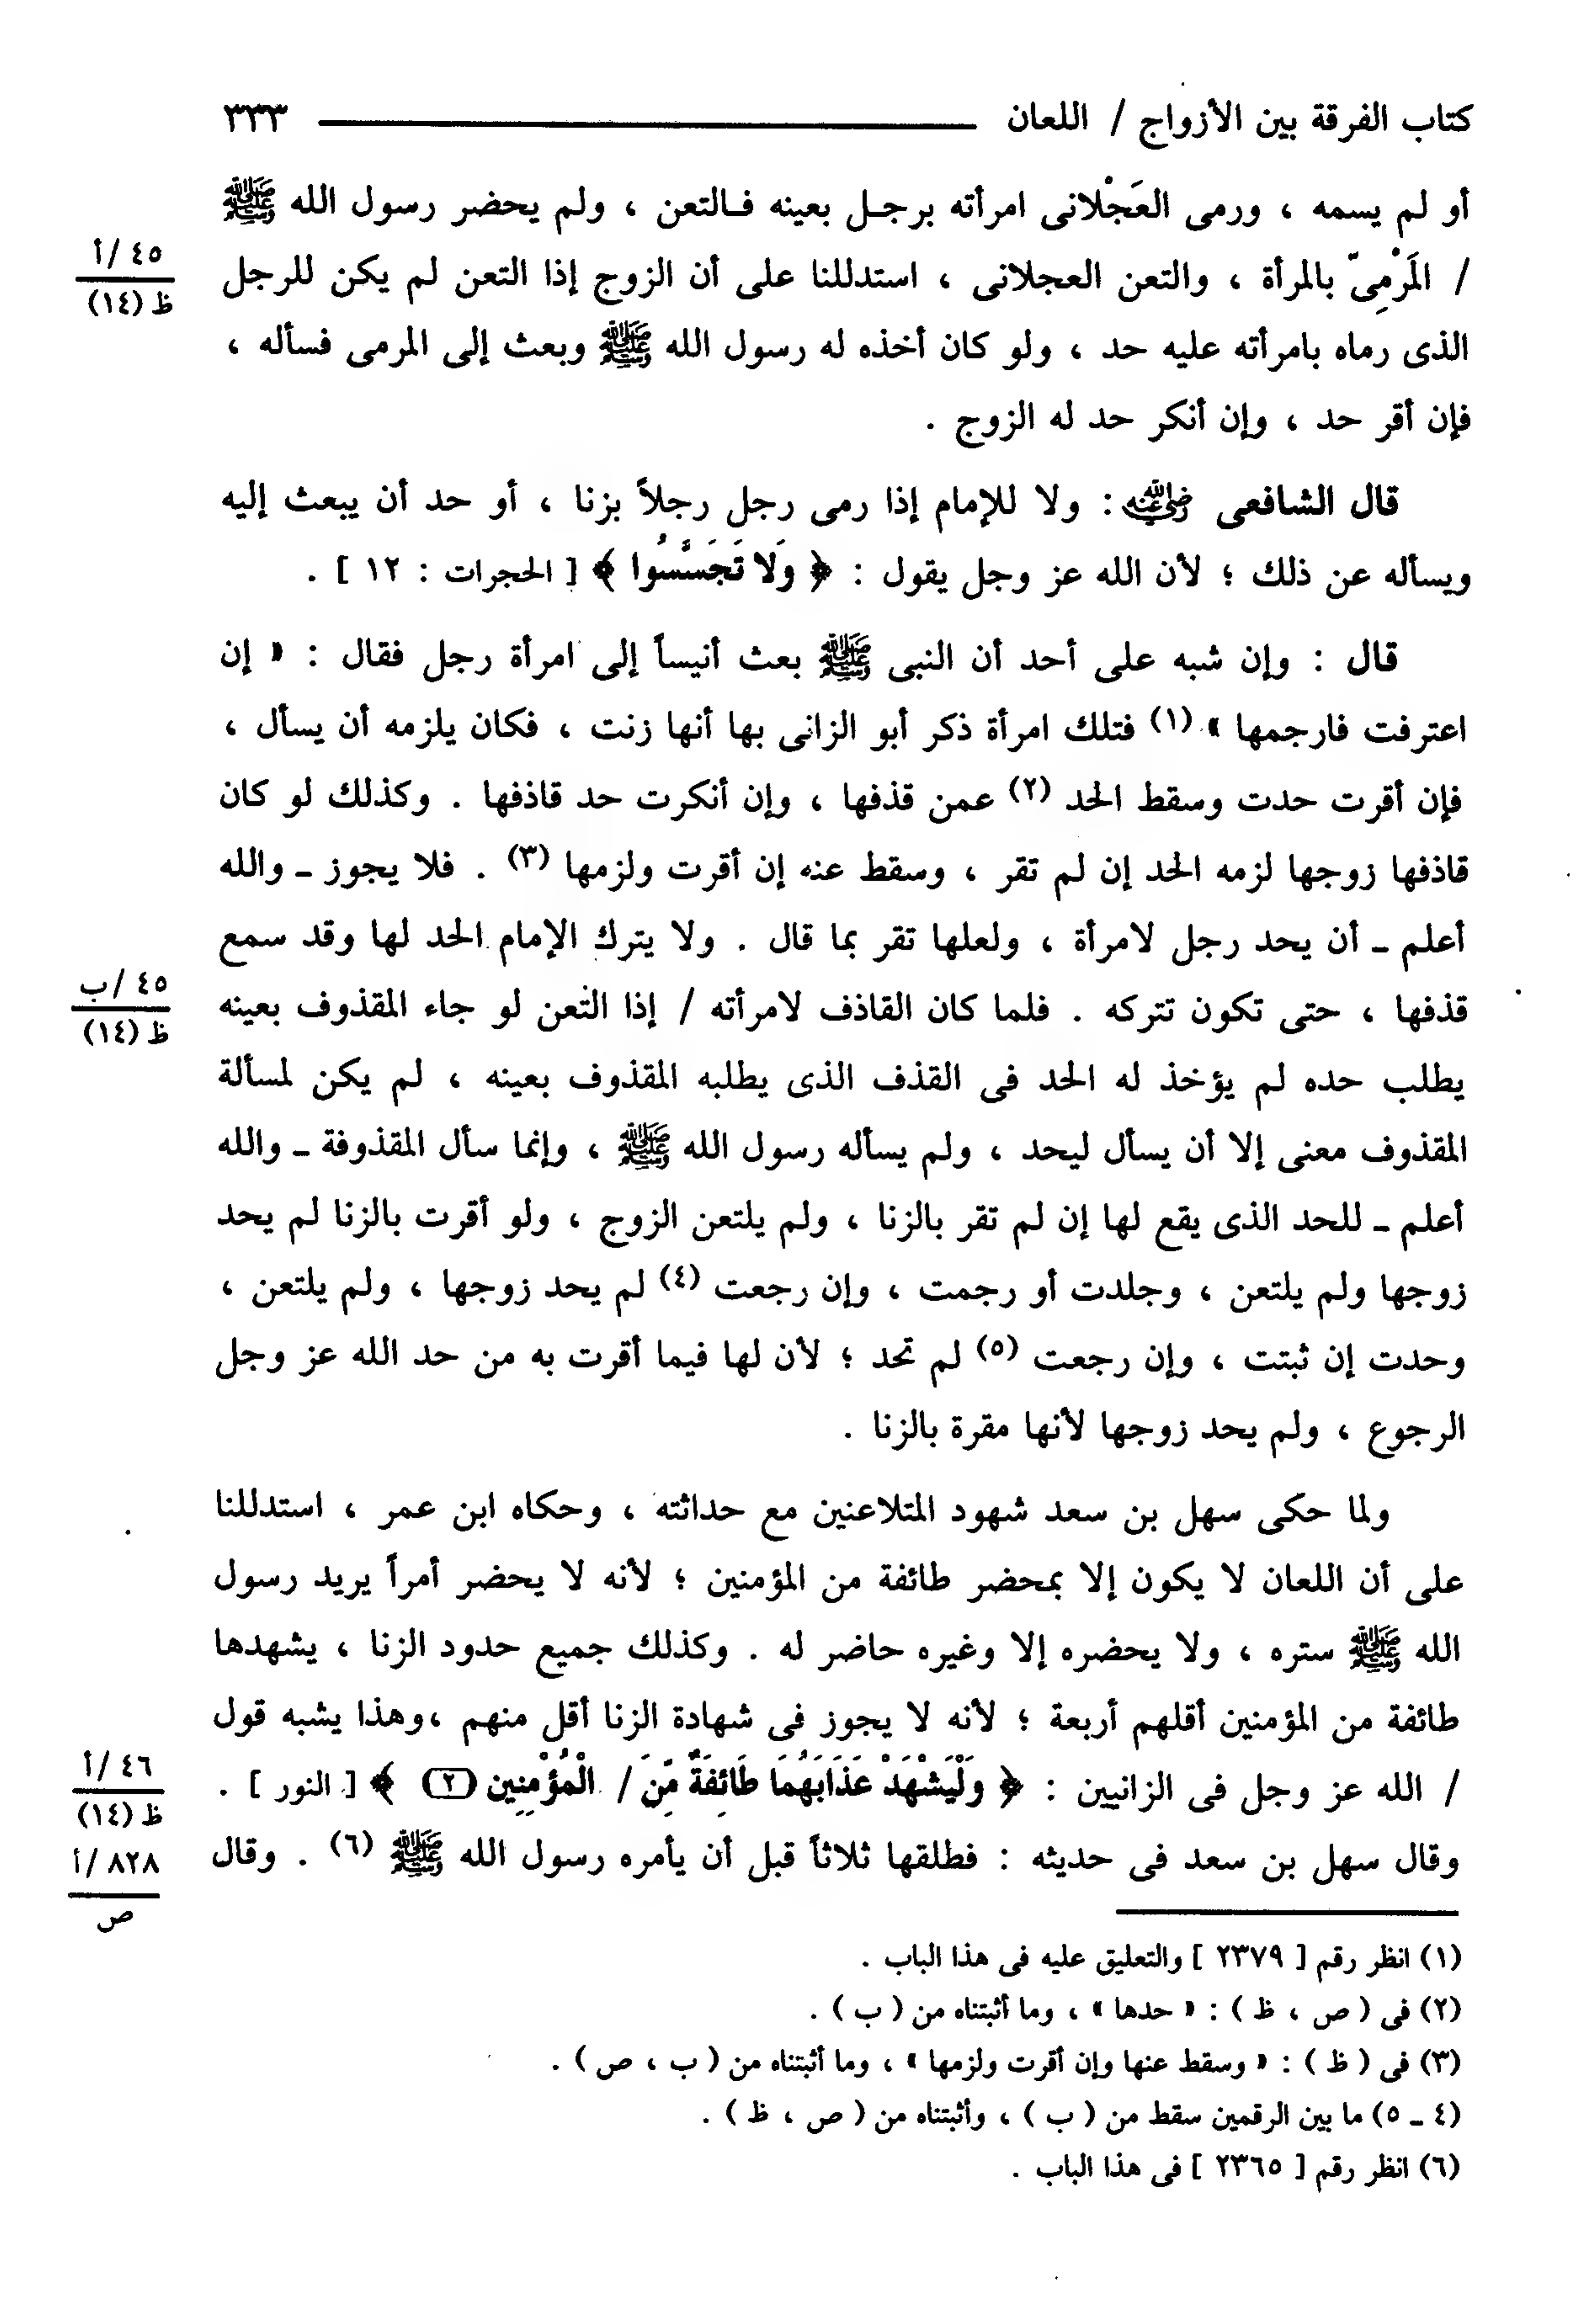 كتاب الفرقة بين الأزواج / اللعان ٣٣٣
أو لم يسمه ، ورمى العَجْلانى امرأته برجل بعينه فالتعن ، ولم يحضر رسول الله ﷺ
٤٥ /أ
ظ (١٤)
/ المَرْمِىّ بالمرأة ، والتعن العجلانى ، استدللنا على أن الزوج إذا التعن لم يكن للرجل
الذى رماه بامرأته عليه حد ، ولو كان أخذه له رسول الله ﷺ وبعث إلى المرمى فسأله ،
فإن أقر حد ، وإن أنكر حد له الزوج .
قال الشافعى رضي الله عنه : ولا للإمام إذا رمى رجل رجلاً بزنا ، أو حد أن يبعث إليه
ويسأله عن ذلك ؛ لأن الله عز وجل يقول : ﴿ وَلا تَجَسَّسُوا ﴾ [ الحجرات : ١٢ ] .
قال : وإن شبه على أحد أن النبى ﷺ بعث أنيساً إلى امرأة رجل فقال : « إن
اعترفت فارجمها » (١) فتلك امرأة ذكر أبو الزانى بها أنها زنت ، فكان يلزمه أن يسأل ،
فإن أقرت حدت وسقط الحد (٢) عمن قذفها ، وإن أنكرت حد قاذفها . وكذلك لو كان
قاذفها زوجها لزمه الحد إن لم تقر ، وسقط عنه إن أقرت ولزمها (٣) . فلا يجوز ـ والله
أعلم ـ أن يحد رجل لامرأة ، ولعلها تقر بما قال . ولا يترك الإمام الحد لها وقد سمع
٤٥ /ب
ظ (١٤)
قذفها ، حتى تكون تتركه . فلما كان القاذف لامرأته / إذا التعن لو جاء المقذوف بعينه
يطلب حده لم يؤخذ له الحد فى القذف الذى يطلبه المقذوف بعينه ، لم يكن لمسألة
المقذوف معنى إلا أن يسأل ليحد ، ولم يسأله رسول الله ﷺ ، وإنما سأل المقذوفة ـ والله
أعلم ـ للحد الذى يقع لها إن لم تقر بالزنا ، ولم يلتعن الزوج ، ولو أقرت بالزنا لم يحد
زوجها ولم يلتعن ، وجلدت أو رجمت ، وإن رجعت (٤) لم يحد زوجها ، ولم يلتعن ،
وحدت إن ثبتت ، وإن رجعت (٥) لم تحد ؛ لأن لها فيما أقرت به من حد الله عز وجل
الرجوع ، ولم يحد زوجها لأنها مقرة بالزنا .
ولما حكى سهل بن سعد شهود المتلاعنين مع حداثته ، وحكاه ابن عمر ، استدللنا
على أن اللعان لا يكون إلا بمحضر طائفة من المؤمنين ؛ لأنه لا يحضر أمراً يريد رسول
الله ﷺ ستره ، ولا يحضره إلا وغيره حاضر له . وكذلك جميع حدود الزنا ، يشهدها
طائفة من المؤمنين أقلهم أربعة ؛ لأنه لا يجوز فى شهادة الزنا أقل منهم ،وهذا يشبه قول
٤٦ /أ
ظ (١٤)
/ الله عز وجل فى الزانيين : ﴿ وَلْيَشْهَدْ عَذَابَهُمَا طَائِفَةٌ مِّنَ / الْمُؤْمِنِين (٢) ﴾ [ النور ] .
٨٢٨ /أ
ص
وقال سهل بن سعد فى حديثه : فطلقها ثلاثاً قبل أن يأمره رسول الله ﷺ (٦) . وقال
(١) انظر رقم [ ٢٣٧٩ ] والتعليق عليه فى هذا الباب .
(٢) فى ( ص ، ظ ) : « حدها » ، وما أثبتناه من ( ب ) .
(٣) فى ( ظ ) : « وسقط عنها وإن أقرت ولزمها » ، وما أثبتناه من ( ب ، ص ) .
(٤ ـ ٥) ما بين الرقمين سقط من ( ب ) ، وأثبتناه من ( ص ، ظ ) .
(٦) انظر رقم [ ٢٣٦٥ ] فى هذا الباب .